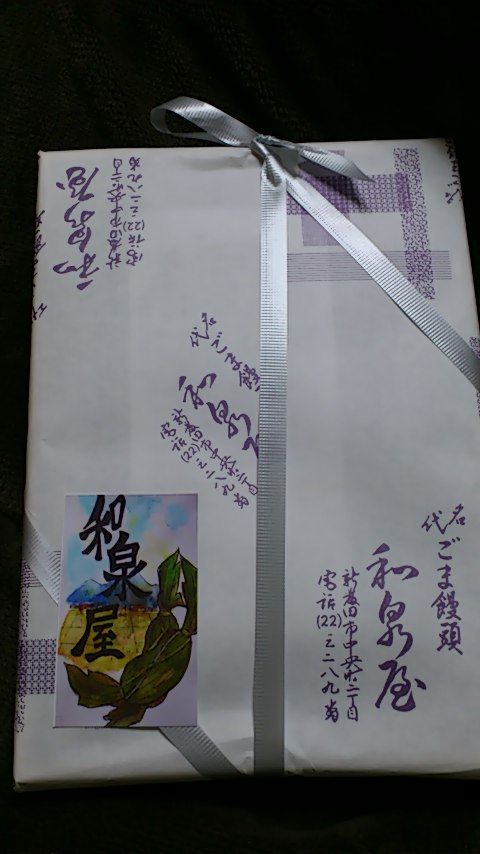 和泉屋
新発田市中央町二丁目
電話(22)三二八九番
名代
ごま饅
和泉
新発田市中央町二丁目
電話(22)三二八九番
和泉屋
名代
ごま饅頭
和泉屋
新発田市中央町二丁目
電話(22)三二八九番